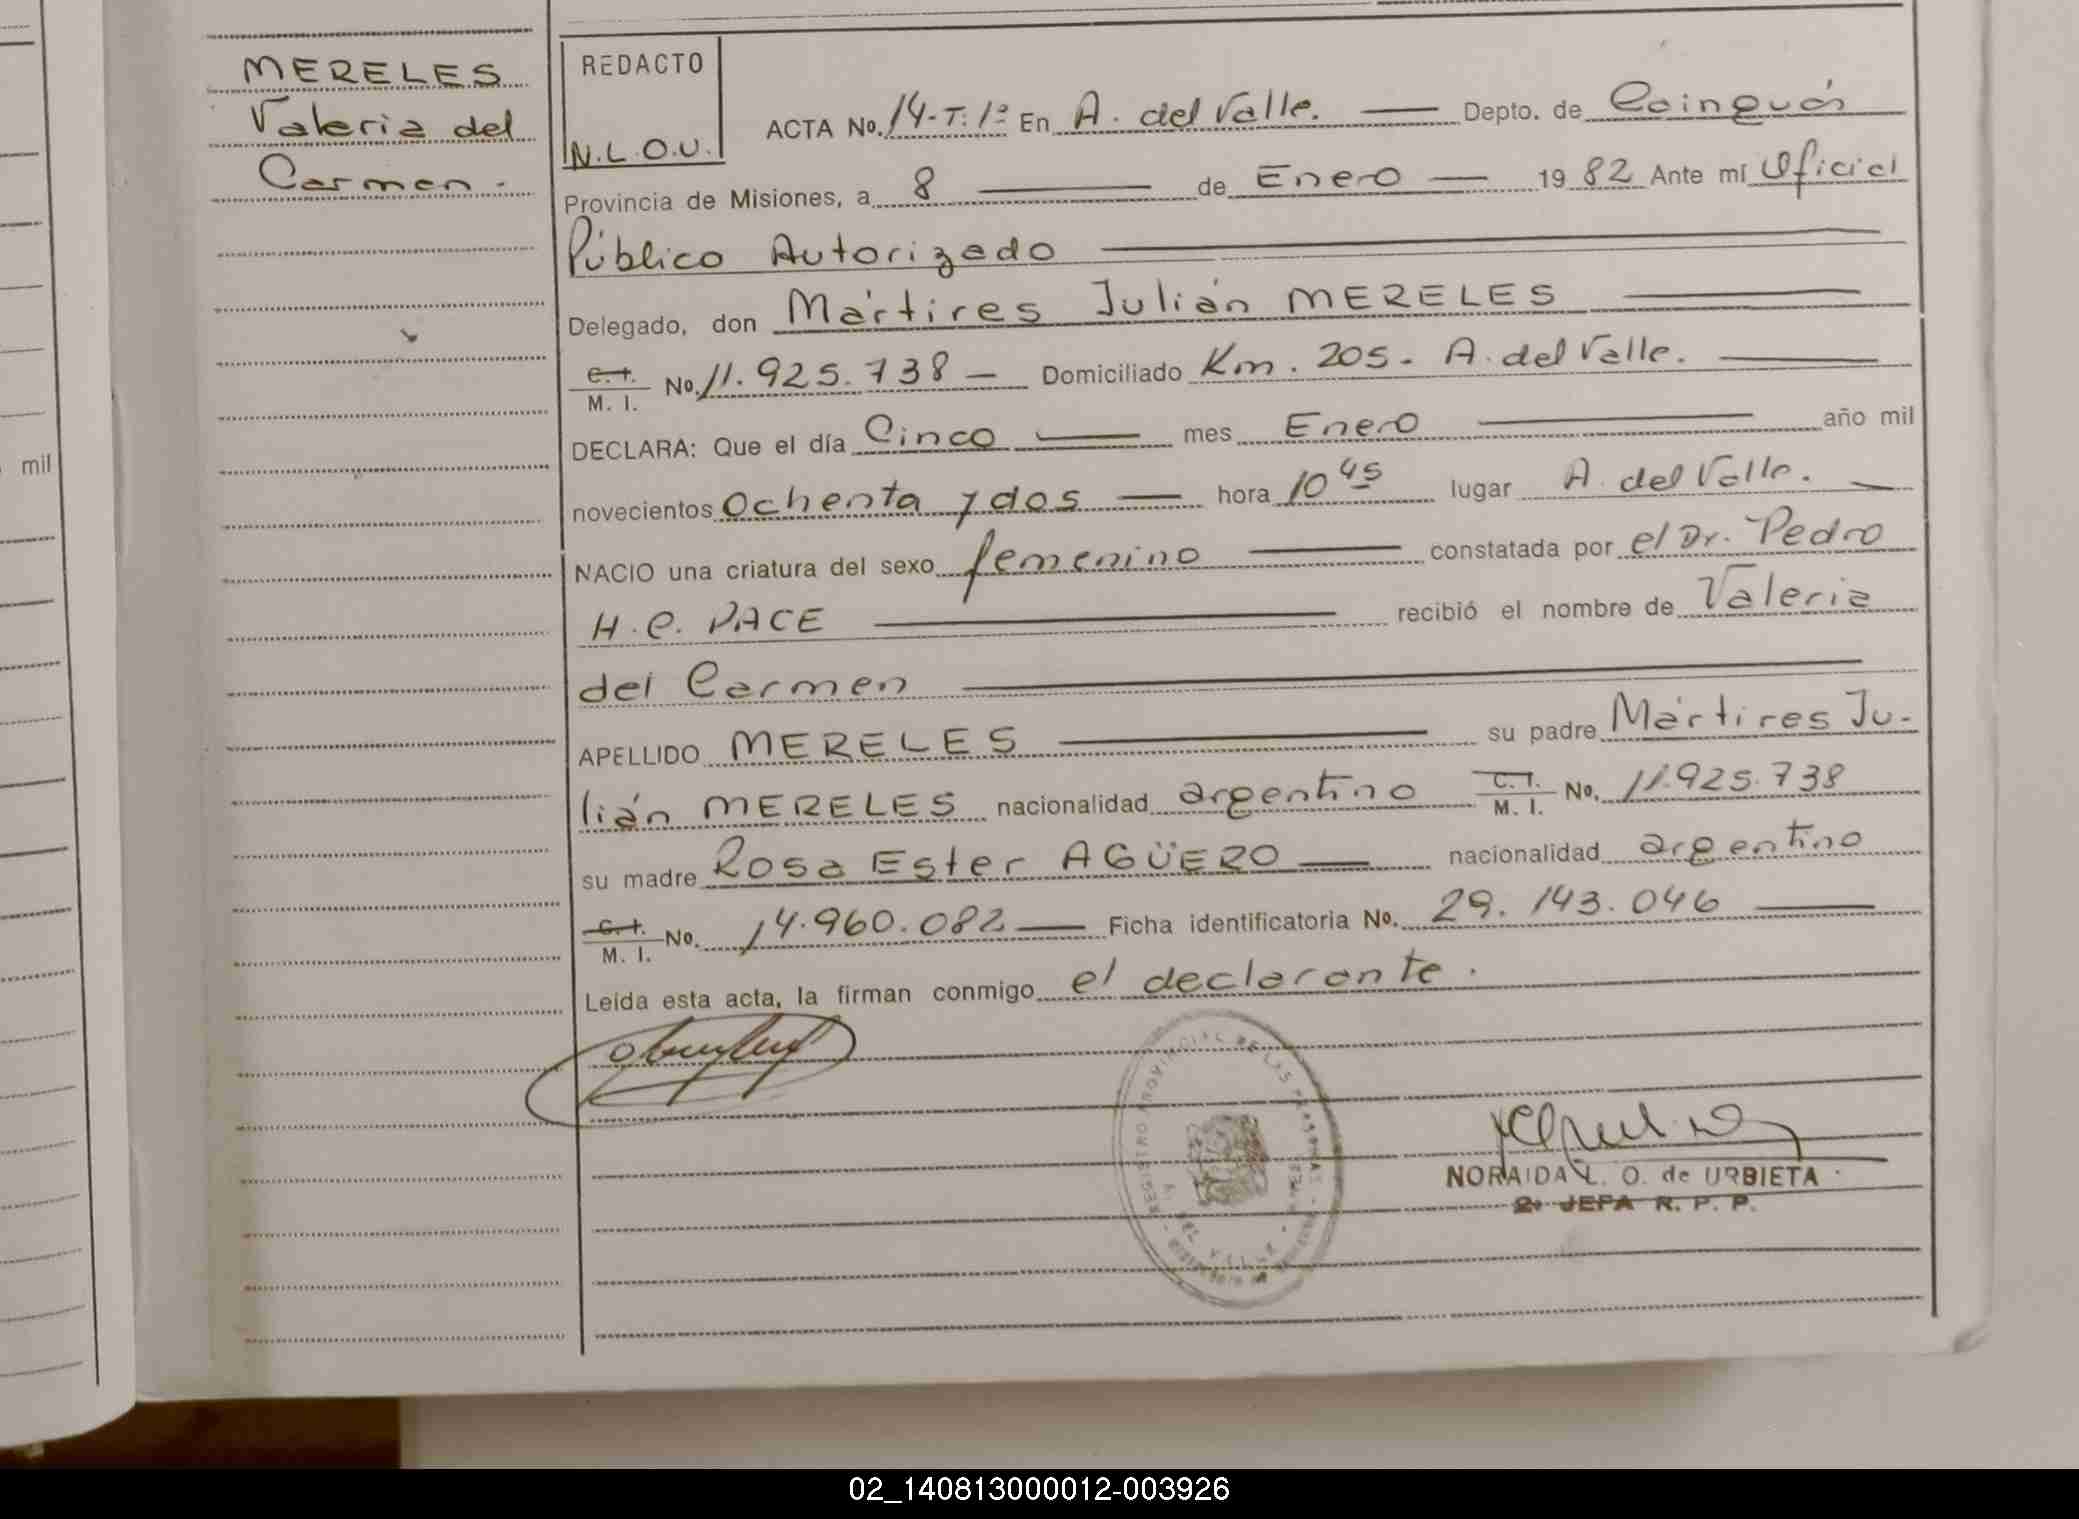 MERELES
Valeria del
Carmen -
mil
REDACTO
N.L.O.U.
ACTA No. 14-T: 1º En A. del Valle. Depto. de Cainguás
Provincia de Misiones, a 8 de Enero 1982 Ante mí Oficial
Público Autorizado
Delegado, don Mártires Julián MERELES
C. I. M. I. No. 11.925.738 - Domiciliado Km. 205 - A. del Valle.
DECLARA: Que el día Cinco mes Enero año mil
novecientos Ochenta y dos hora 10 45 lugar A. del Valle.
NACIO una criatura del sexo femenino constatada por el Dr. Pedro
H. C. PACE recibió el nombre de Valeria
del Carmen
APELLIDO MERELES su padre Mártires Ju-
lián MERELES nacionalidad argentino C. I. M. I. No. 11.925.738
su madre Rosa Ester AGÜERO nacionalidad argentino
C. I. M. I. No. 14.960.082 Ficha identificatoria No. 29.143.046
Leída esta acta, la firman conmigo el declarante.
NORAIDA L. O. de URBIETA
2º JEFA R. P. P.
02_140813000012-003926